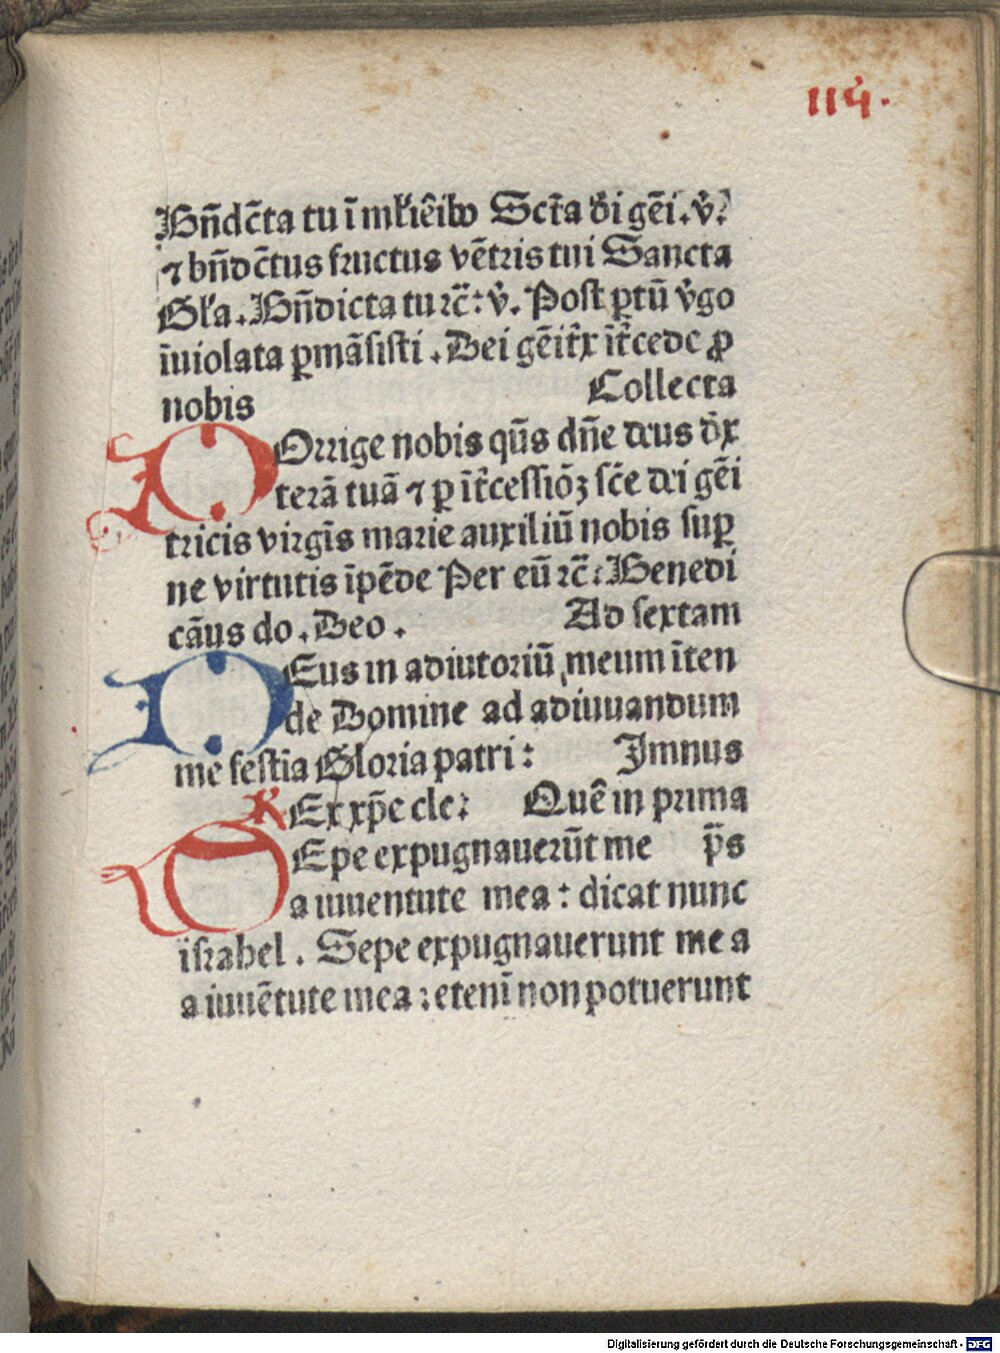 114.
Bn̄dc̄ta tu ī ml̓iēib⁊ Sct̄a d̄i gēi. v̓.
⁊ bn̄dc̄tus fructus vētris tui Sancta
Gl̓a. Bn̄dicta tu ꝛc̄: v̓. Post ꝑtū v̓go
īuiolata ꝑmāsisti. Dei gēit̄x īt̄cede ꝓ
nobis Collecta
POrrige nobis qūs dn̄e deus dx̄
terā tuā ⁊ ꝑ īt̄cessiōꝫ sc̄e dei gēi
tricis virgīs marie auxiliū nobis suꝑ
ne virtutis īpēde Per eū ꝛc̄: Benedi
cāus do. Deo. Ad sextam
DEus in adiutoriū meum īten
de Domine ad adiuuandum
me festia Gloria patri: Jmnus
REx xp̄e cle: Quē in prima
SEpe expugnauerūt me p̄s
a iuuentute mea: dicat nunc
israhel. Sepe expugnauerunt me a
a iuuētute mea: etenī non potuerunt
Digitalisierung gefördert durch die Deutsche Forschungsgemeinschaft - DFG